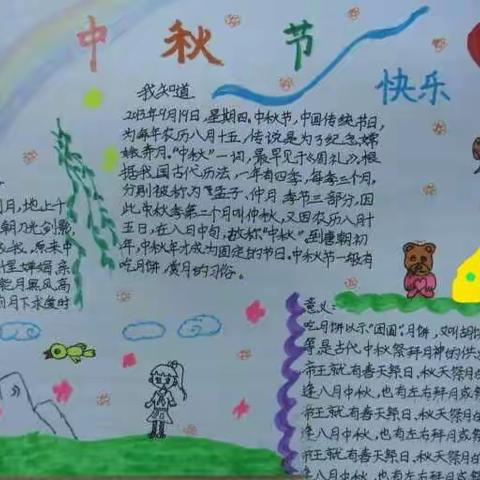 中秋节
快乐
我知道
2013年9月19日,星期四,中秋节,中国传统节日,
为每年农历八月十五,传说是为了纪念嫦
娥奔月。“中秋”一词,最早见于《周礼》,根
据我国古代历法,一年有四季,每季三个月,
分别被称为孟子、仲月季节三部分,因
此中秋季第二个月叫仲秋,又因农历八月十
五日,在八月中旬,故称“中秋”。到唐朝初
年,中秋节才成为固定的节日。中秋节一般有
吃月饼,赏月的习俗。
月,地上十
朝刀光剑影,
我,原来中
婵娟,亲
月黑风高
月下求度时
意义:
吃月饼以示“团圆”。月饼,又叫胡饼
等,是古代中秋祭拜月神的供
帝王就有春天祭日,秋天祭月的
逢八月中秋,也有左右拜月或祭
帝王就有春天祭日,秋天祭月的
逢八月中秋,也有左右拜月或祭
帝王就有春天祭日,秋天祭月的
逢八月中秋,也有左右拜月或祭